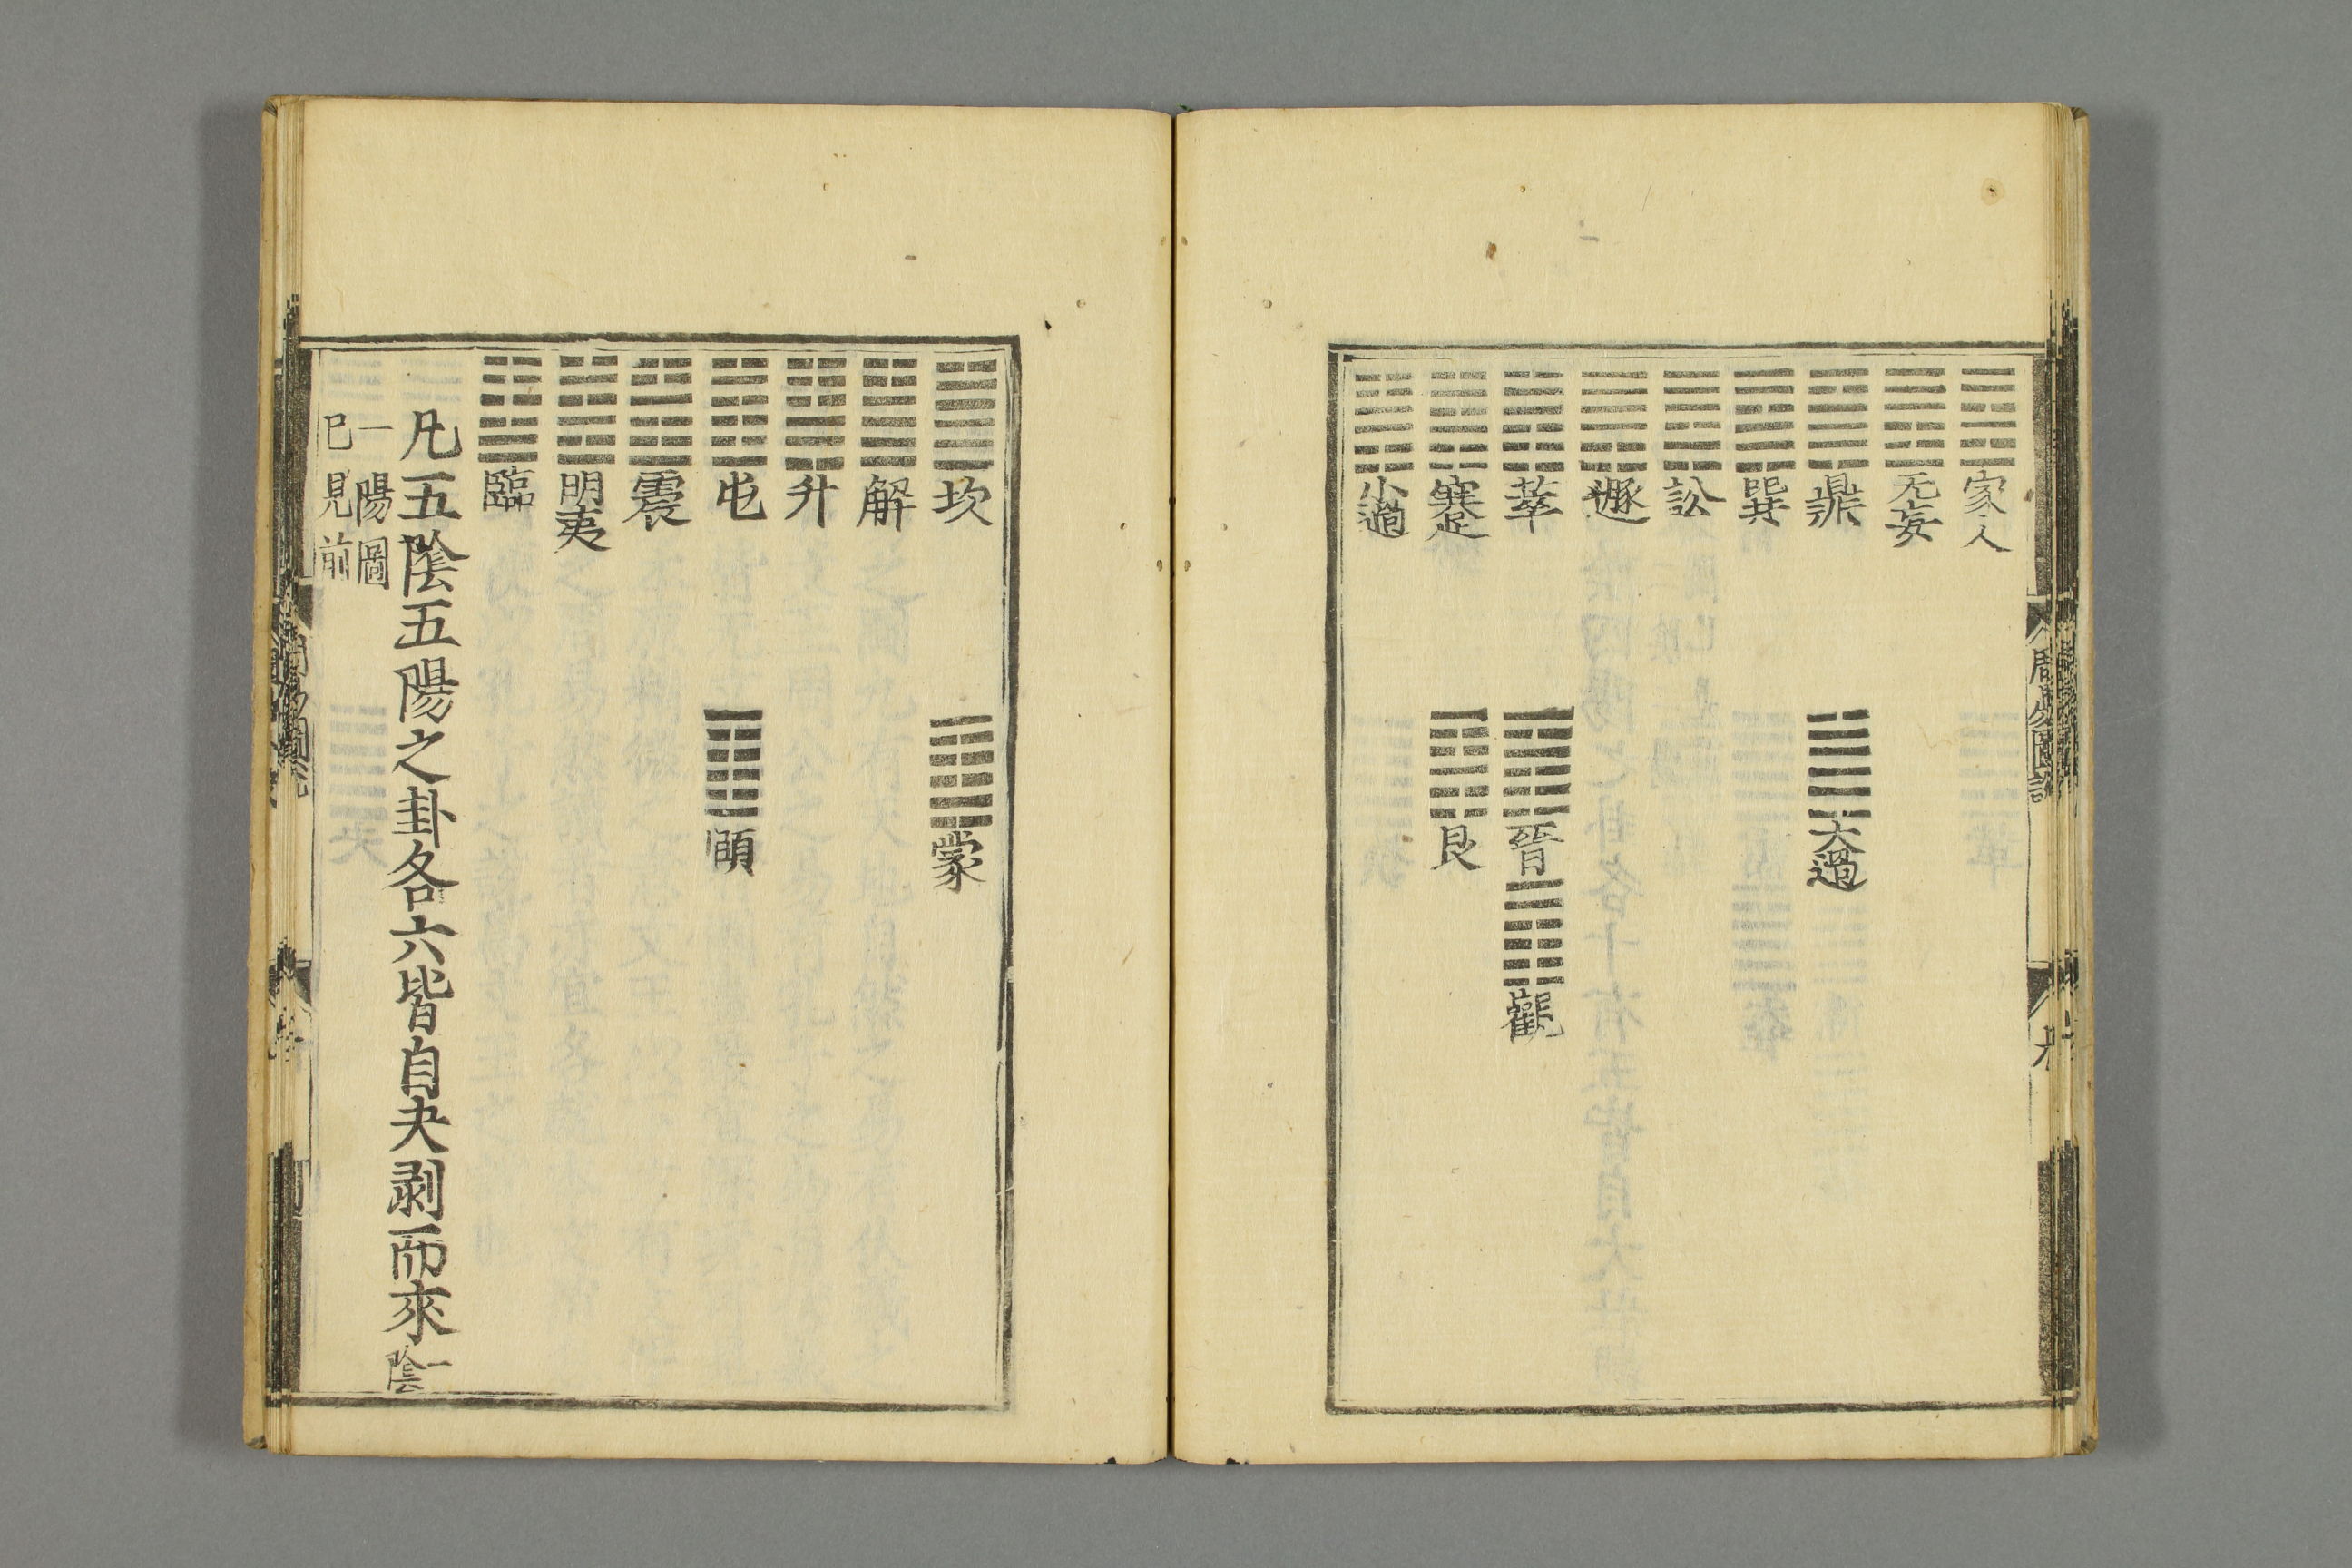 家人
无妄
鼎 大過
巽
訟
遯
萃 晉 觀
蹇 艮
小過
坎 蒙
解
升
屯 頤
震
明夷
臨
凡五陰五陽之卦各六皆自夬剥而來一陰
一陽圖
已見前